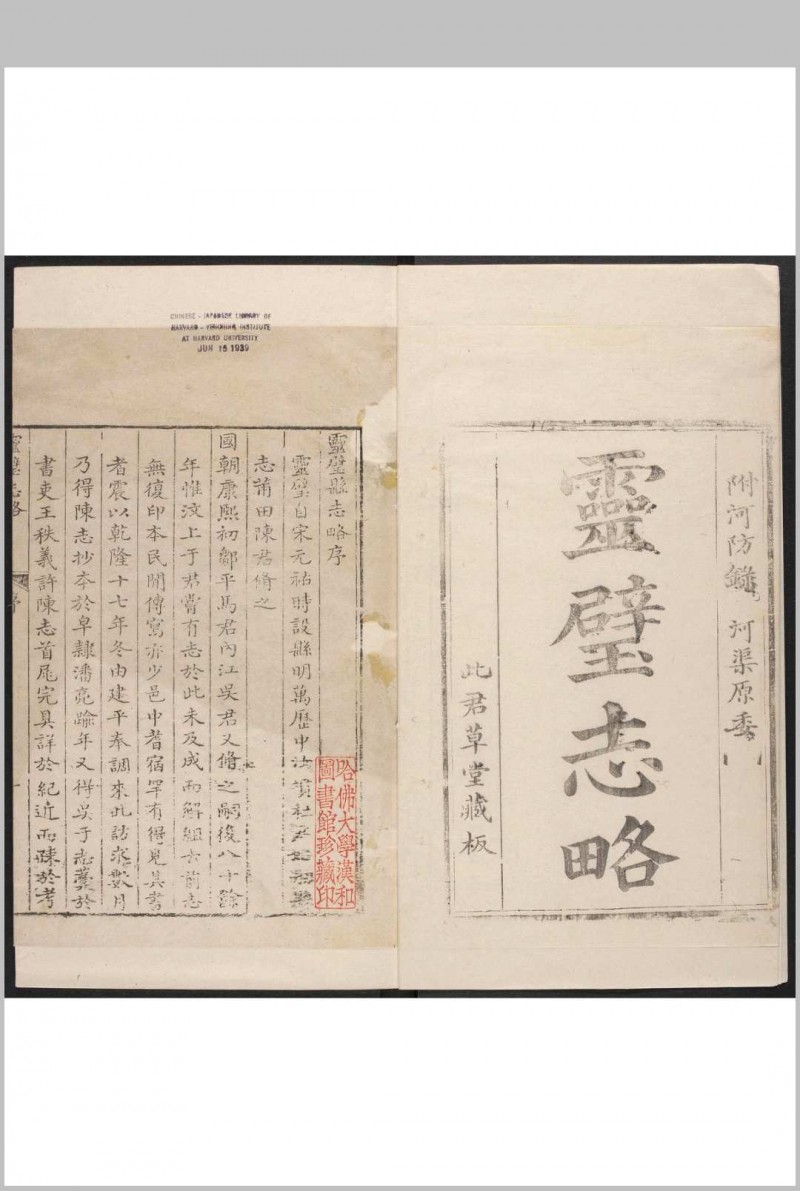 附河防錄 河渠原委
靈璧志略
此君草堂藏板
CHINESE - JAPANESE LIBRARY OF
HARVARD - YENCHING INSTITUTE
AT HARVARD UNIVERSITY
JUN 15 1939
哈佛大學漢和
圖書館珍藏印
靈璧縣志略序
靈璧自宋元祐時設縣明萬歷中
志莆田陳君脩之
國朝康熙初鄒平馬君內江吳君又脩之嗣後八十餘
年惟汶上于君嘗有志於此未及成而解組去前志
無復印本民間傳寫亦少邑中耆宿罕有得見其書
者震以乾隆十七年冬由建平奉調來此訪求數月
乃得陳志抄本於皁隸潘亮踰年又得吳于志藁於
書吏王秩義許陳志首尾完具詳於紀近而疎於考
靈璧志略
序